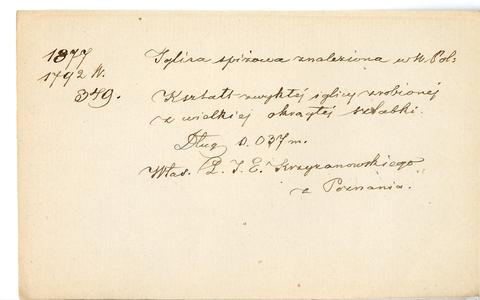 1877
1792 N.
349.
Iglica spiżowa znaleziona w W. Pol:
Kształt zwykłej iglicy zrobionej
z wielkiej okrągłej sztabki.
Dług. 0.037 m.
Włas. P. J. E. Krzyżanowskiego
z Poznania.